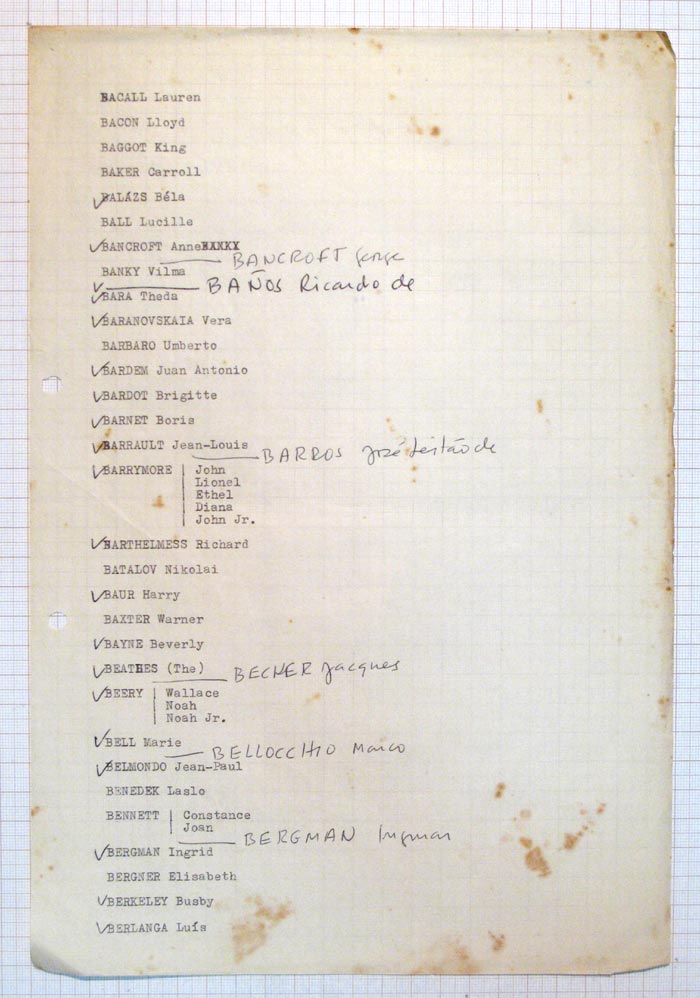 BACALL Lauren
BACON Lloyd
BAGGOT King
BAKER Carroll
✓BALÁZS Béla
BALL Lucille
✓BANCROFT AnneXXXXX
BANCROFT George
BANKY Vilma
✓ BAÑOS Ricardo de
✓BARA Theda
✓BARANOVSKAIA Vera
BARBARO Umberto
✓BARDEM Juan Antonio
✓BARDOT Brigitte
✓BARNET Boris
✓BARRAULT Jean-Louis
BARROS José Leitão de
✓BARRYMORE | John
Lionel
Ethel
Diana
John Jr.
✓BARTHELMESS Richard
BATALOV Nikolai
✓BAUR Harry
BAXTER Warner
✓BAYNE Beverly
✓BEATHES (The)
BECKER Jacques
✓BEERY | Wallace
Noah
Noah Jr.
✓BELL Marie
BELLOCCHIO Marco
✓BELMONDO Jean-Paul
BENEDEK Laslo
BENNETT | Constance
Joan
BERGMAN Ingmar
✓BERGMAN Ingrid
BERGNER Elisabeth
✓BERKELEY Busby
✓BERLANGA Luís